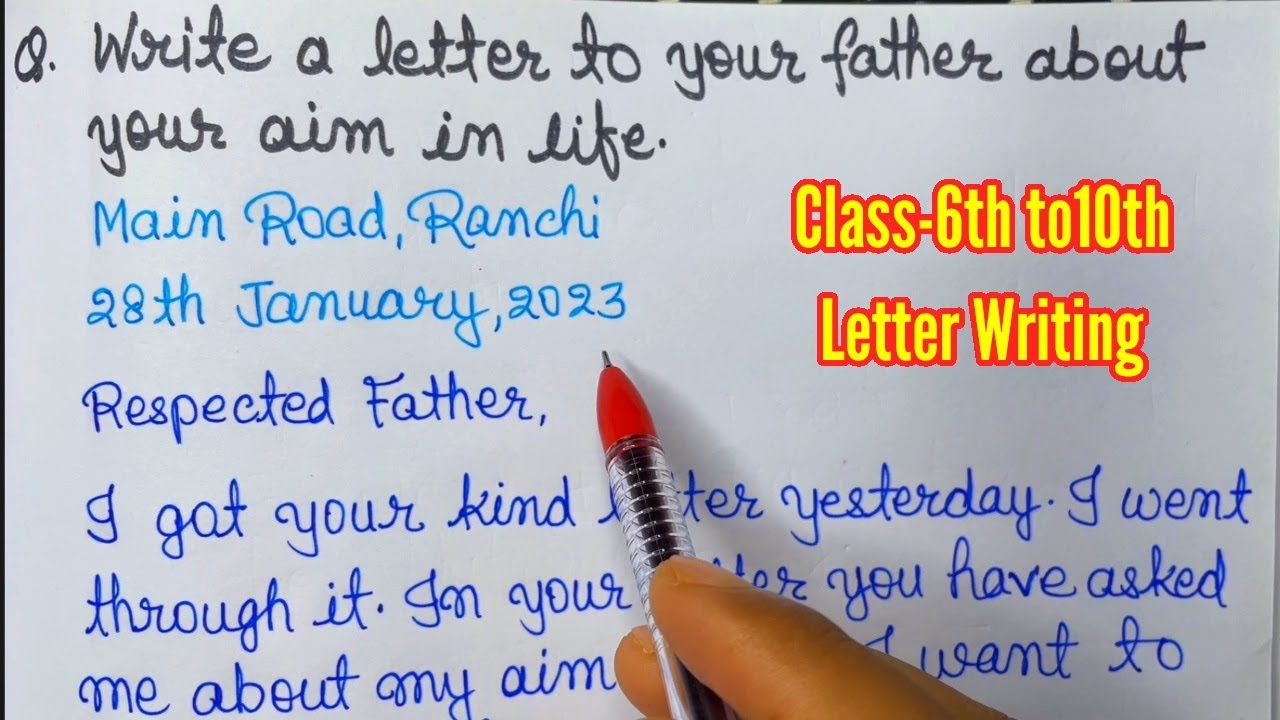 Q. Write a letter to your father about
your aim in life.
Main Road, Ranchi
28th January, 2023
Class-6th to10th
Letter Writing
Respected Father,
I got your kind yesterday. I went
through it. In your you have asked
me about my aim I want to